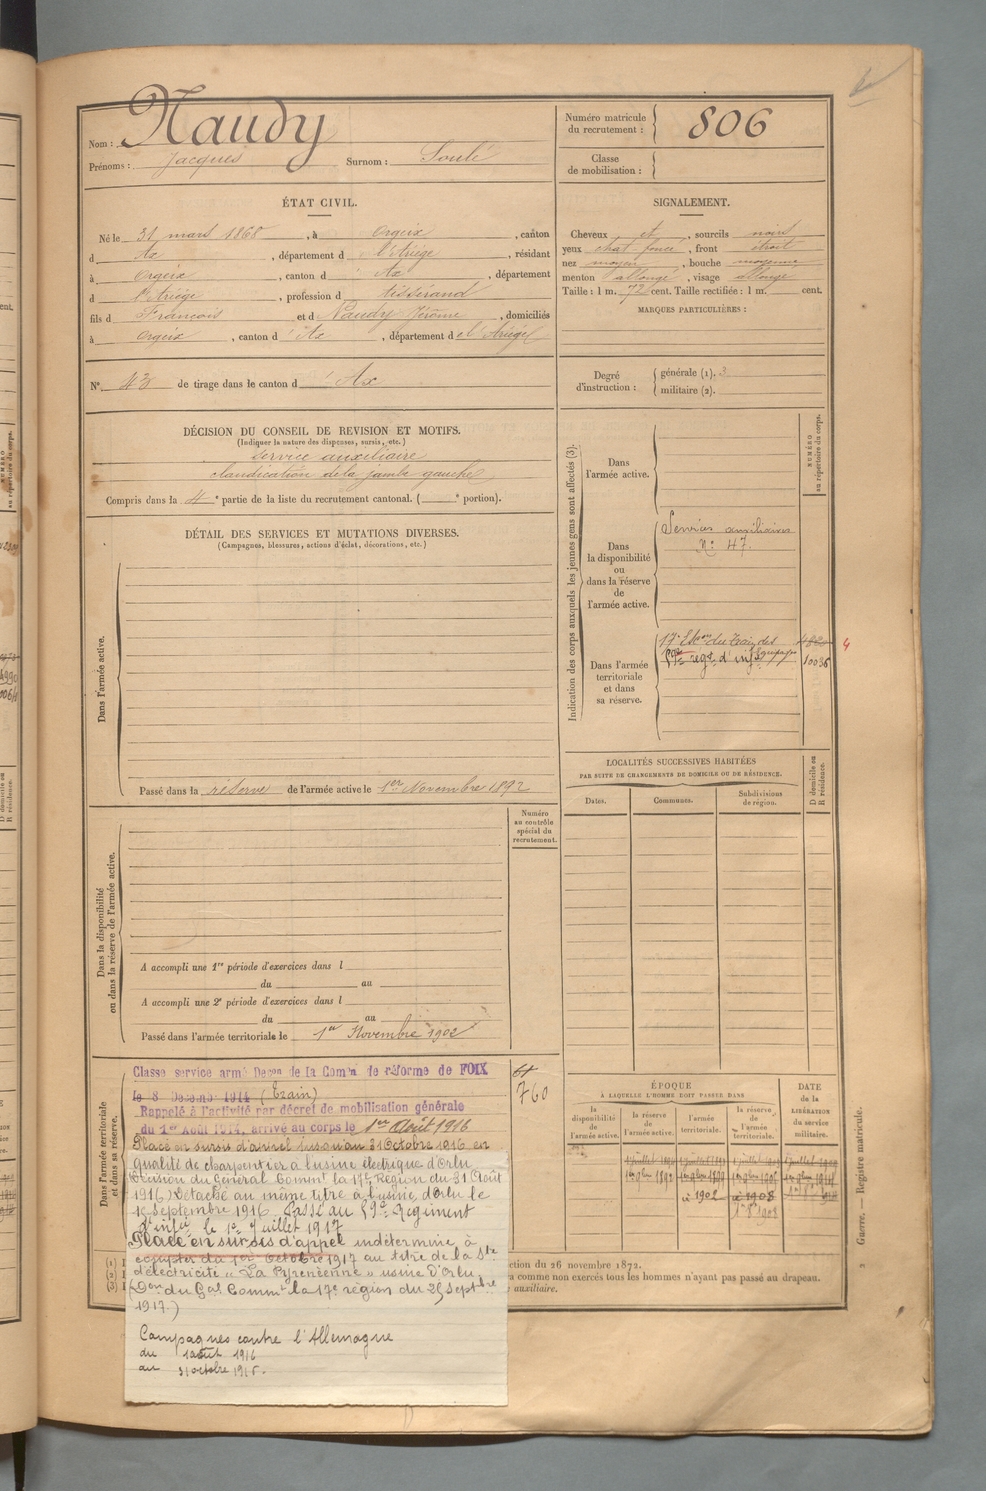 Nom : Naudy
Prénoms : Jacques Surnom : Soulé
Numéro matricule
du recrutement : 806
Classe
de mobilisation :
ÉTAT CIVIL.
Né le 31 mars 1868, à Orgeix, canton
d Ax, département d l'Ariège, résidant
à Orgeix, canton d Ax, département
d l'Ariège, profession d tisserand
fils d François et d Naudy Jérôme, domiciliés
à Orgeix, canton d'Ax, département de l'Ariège
SIGNALEMENT.
Cheveux et, sourcils noirs
yeux chat. foncé, front étroit
nez moyen, bouche moyenne
menton allongé, visage allongé
Taille : 1 m. 72 cent. Taille rectifiée : 1 m. cent.
MARQUES PARTICULIÈRES :
N° 43 de tirage dans le canton d'Ax
Degré
d'instruction :
générale (1). 3
militaire (2).
DÉCISION DU CONSEIL DE REVISION ET MOTIFS.
(Indiquer la nature des dispenses, sursis, etc.)
Service auxiliaire
claudication de la jambe gauche
Compris dans la 4e partie de la liste du recrutement cantonal. ( e portion).
DÉTAIL DES SERVICES ET MUTATIONS DIVERSES.
(Campagnes, blessures, actions d'éclat, décorations, etc.)
Dans l'armée active.
Passé dans la réserve de l'armée active le 1er Novembre 1892
Indication des corps auxquels les jeunes gens sont affectés (3).
NUMÉRO
au répertoire du corps.
Dans
l'armée active.
Dans
la disponibilité
ou
dans la réserve
de
l'armée active.
Services auxiliaires
N° 47.
Dans l'armée
territoriale
et dans
sa réserve.
17e Escon du Train des
Equipages
59e regt d'infie
4820
10036
4
LOCALITÉS SUCCESSIVES HABITÉES
PAR SUITE DE CHANGEMENTS DE DOMICILE OU DE RÉSIDENCE.
Dates. Communes. Subdivisions
de région.
D domicile ou
R résidence.
Numéro
au contrôle
spécial du
recrutement.
Dans la disponibilité
ou dans la réserve de l'armée active.
A accompli une 1re période d'exercices dans l
du au
A accompli une 2e période d'exercices dans l
du au
Passé dans l'armée territoriale le 1er Novembre 1902
Dans l'armée territoriale
et dans sa réserve.
760
Classe service armé Decon de la Comon de réforme de FOIX
le 8 Décembre 1914 (Train)
Rappelé à l'activité par décret de mobilisation générale
du 1er Août 1914, arrivé au corps le 1er Août 1916
Placé en sursis d'appel jusqu'au 31 Octobre 1916 en
qualité de charpentier à l'usine électrique d'Orlu
Décision du Général Commt la 17e Région du 31 Août
1916) Détaché au même titre à l'usine d'Orlu le
15 septembre 1916. Passé au 59e Régiment
d'infie le 1er Juillet 1917
Placé en sursis d'appel indéterminé à
compter du 1er Octobre 1917 au titre de la Sté
d'électricité "La Pyrénéenne" usine d'Orlu
(Don du Gal Commt la 17e région du 25 Septbre
1917.)
Campagnes contre l'Allemagne
du 1 août 1916
au 31 octobre 1916.
ÉPOQUE
À LAQUELLE L'HOMME DOIT PASSER DANS
DATE
de la
LIBÉRATION
du service
militaire.
la
disponibilité
de
l'armée active.
la réserve
de
l'armée active.
l'armée
territoriale.
la réserve
de
l'armée
territoriale.
1902
1908
ction du 26 novembre 1872.
a comme non exercés tous les hommes n'ayant pas passé au drapeau.
auxiliaire.
Guerre. — Registre matricule.